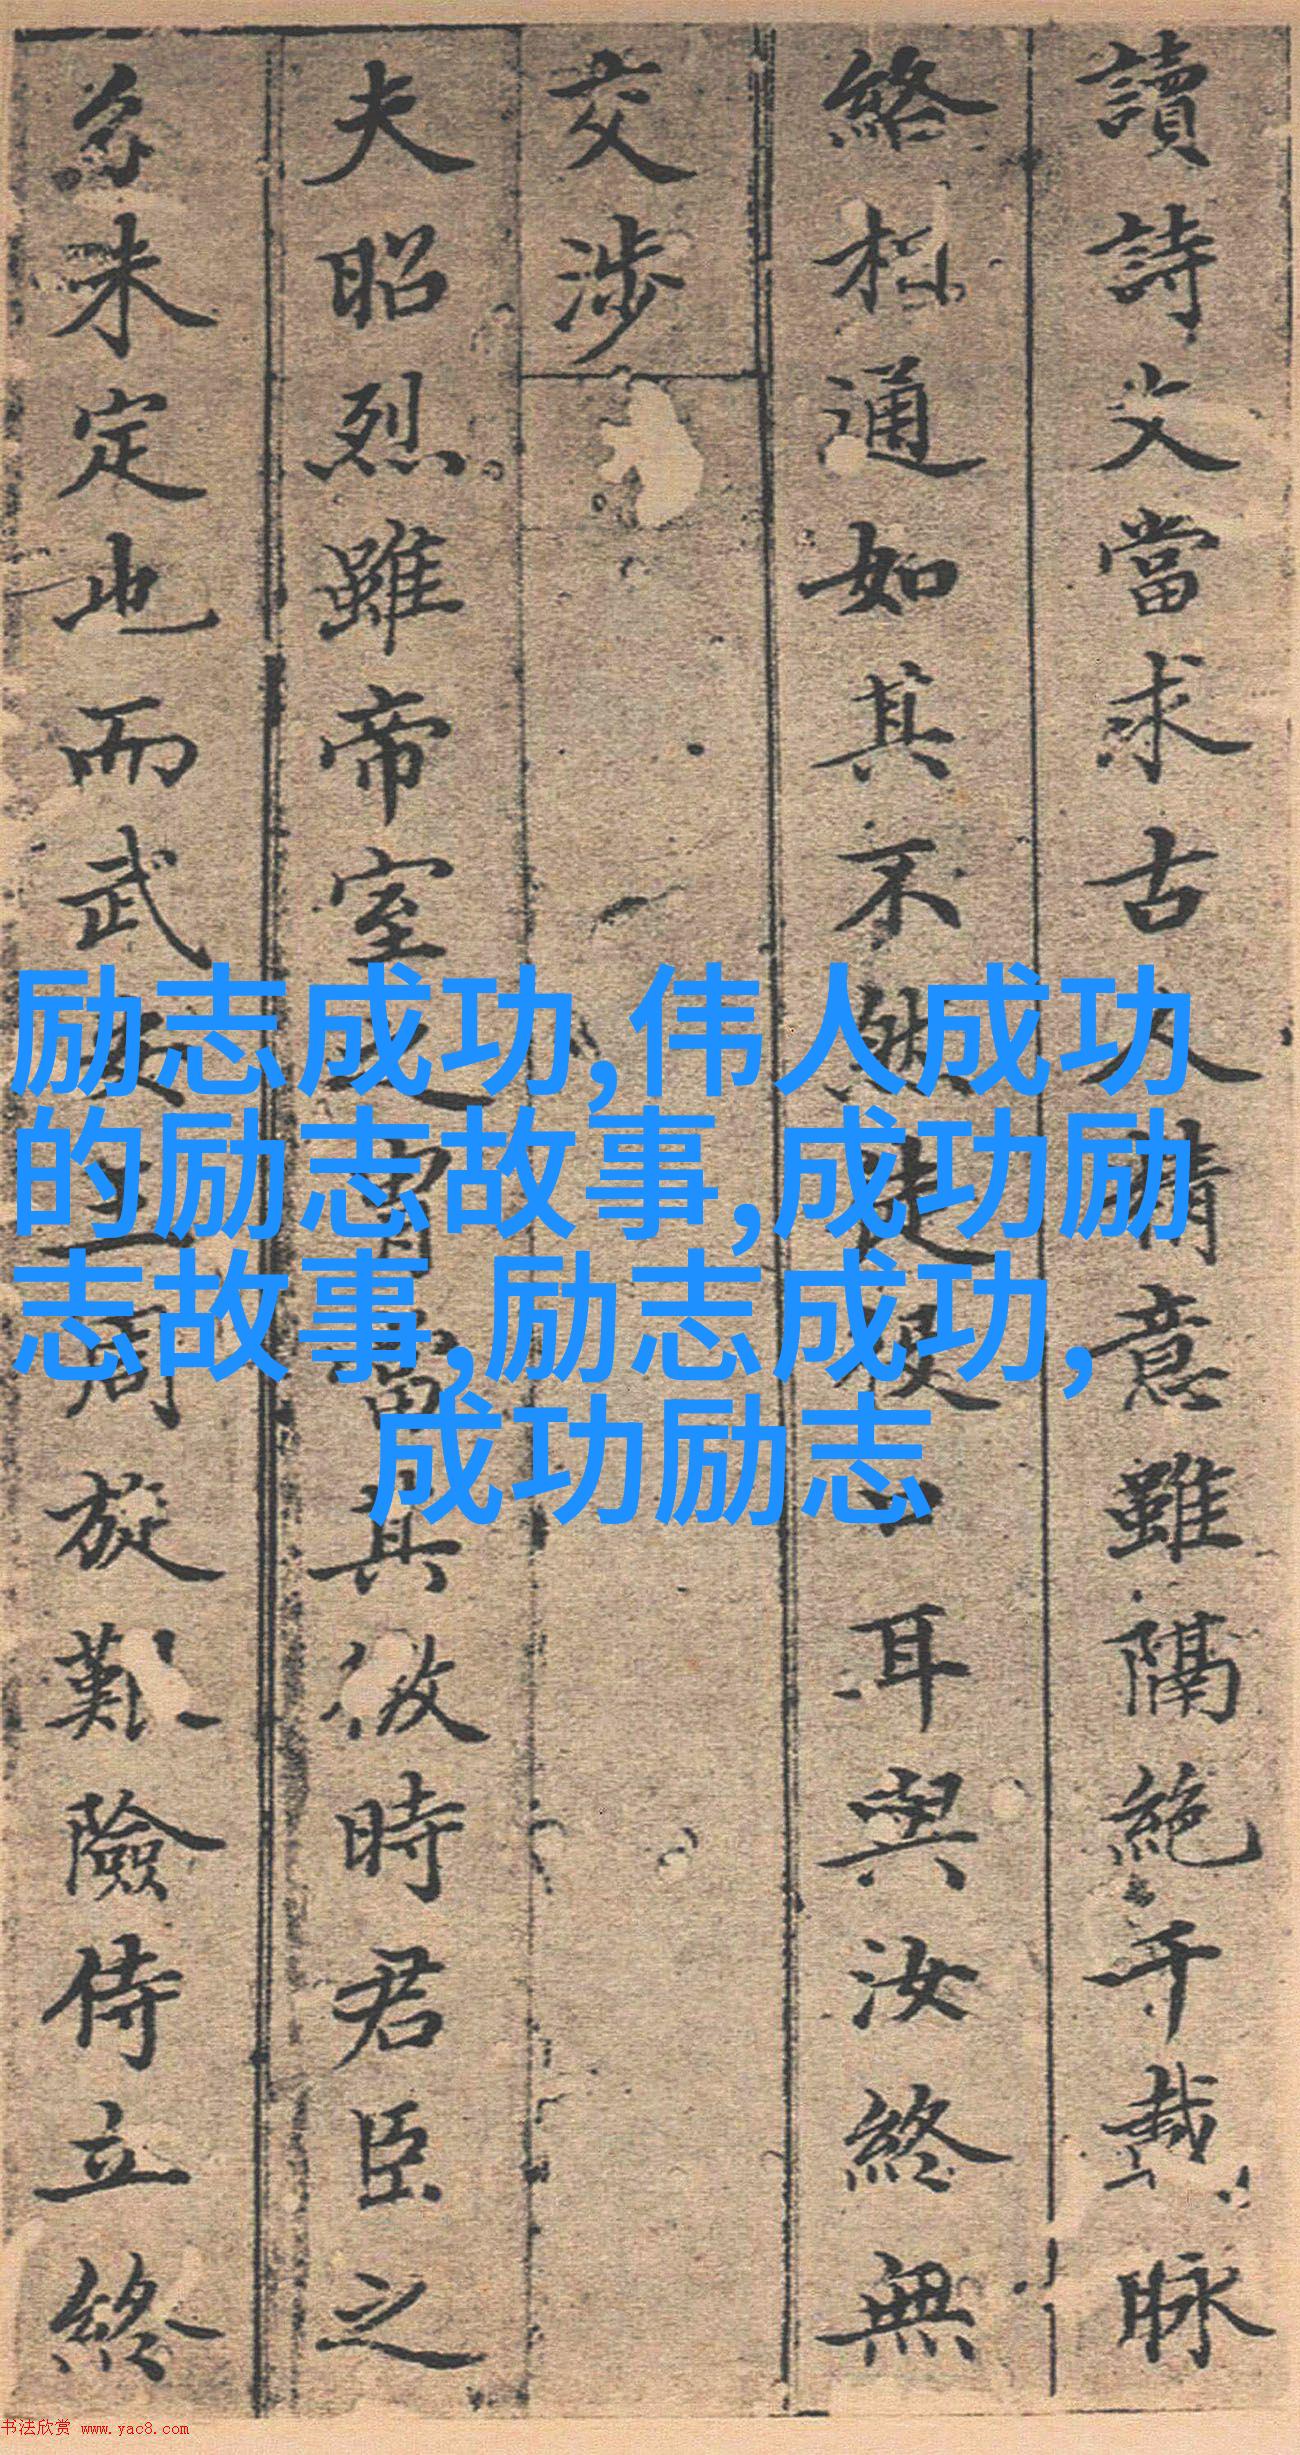 讀詩文當求古人情意雖隔絕千載脉
絡相通如其不然徒授口耳與汝終無
交涉
夫昭烈雖帝室之胄當其微時君臣之
分未定也而武安王周旋艱險侍立終
励志成功,伟人成功
的励志故事,成功励
志故事,励志成功,
成功励志
书法欣赏 www.yac8.com